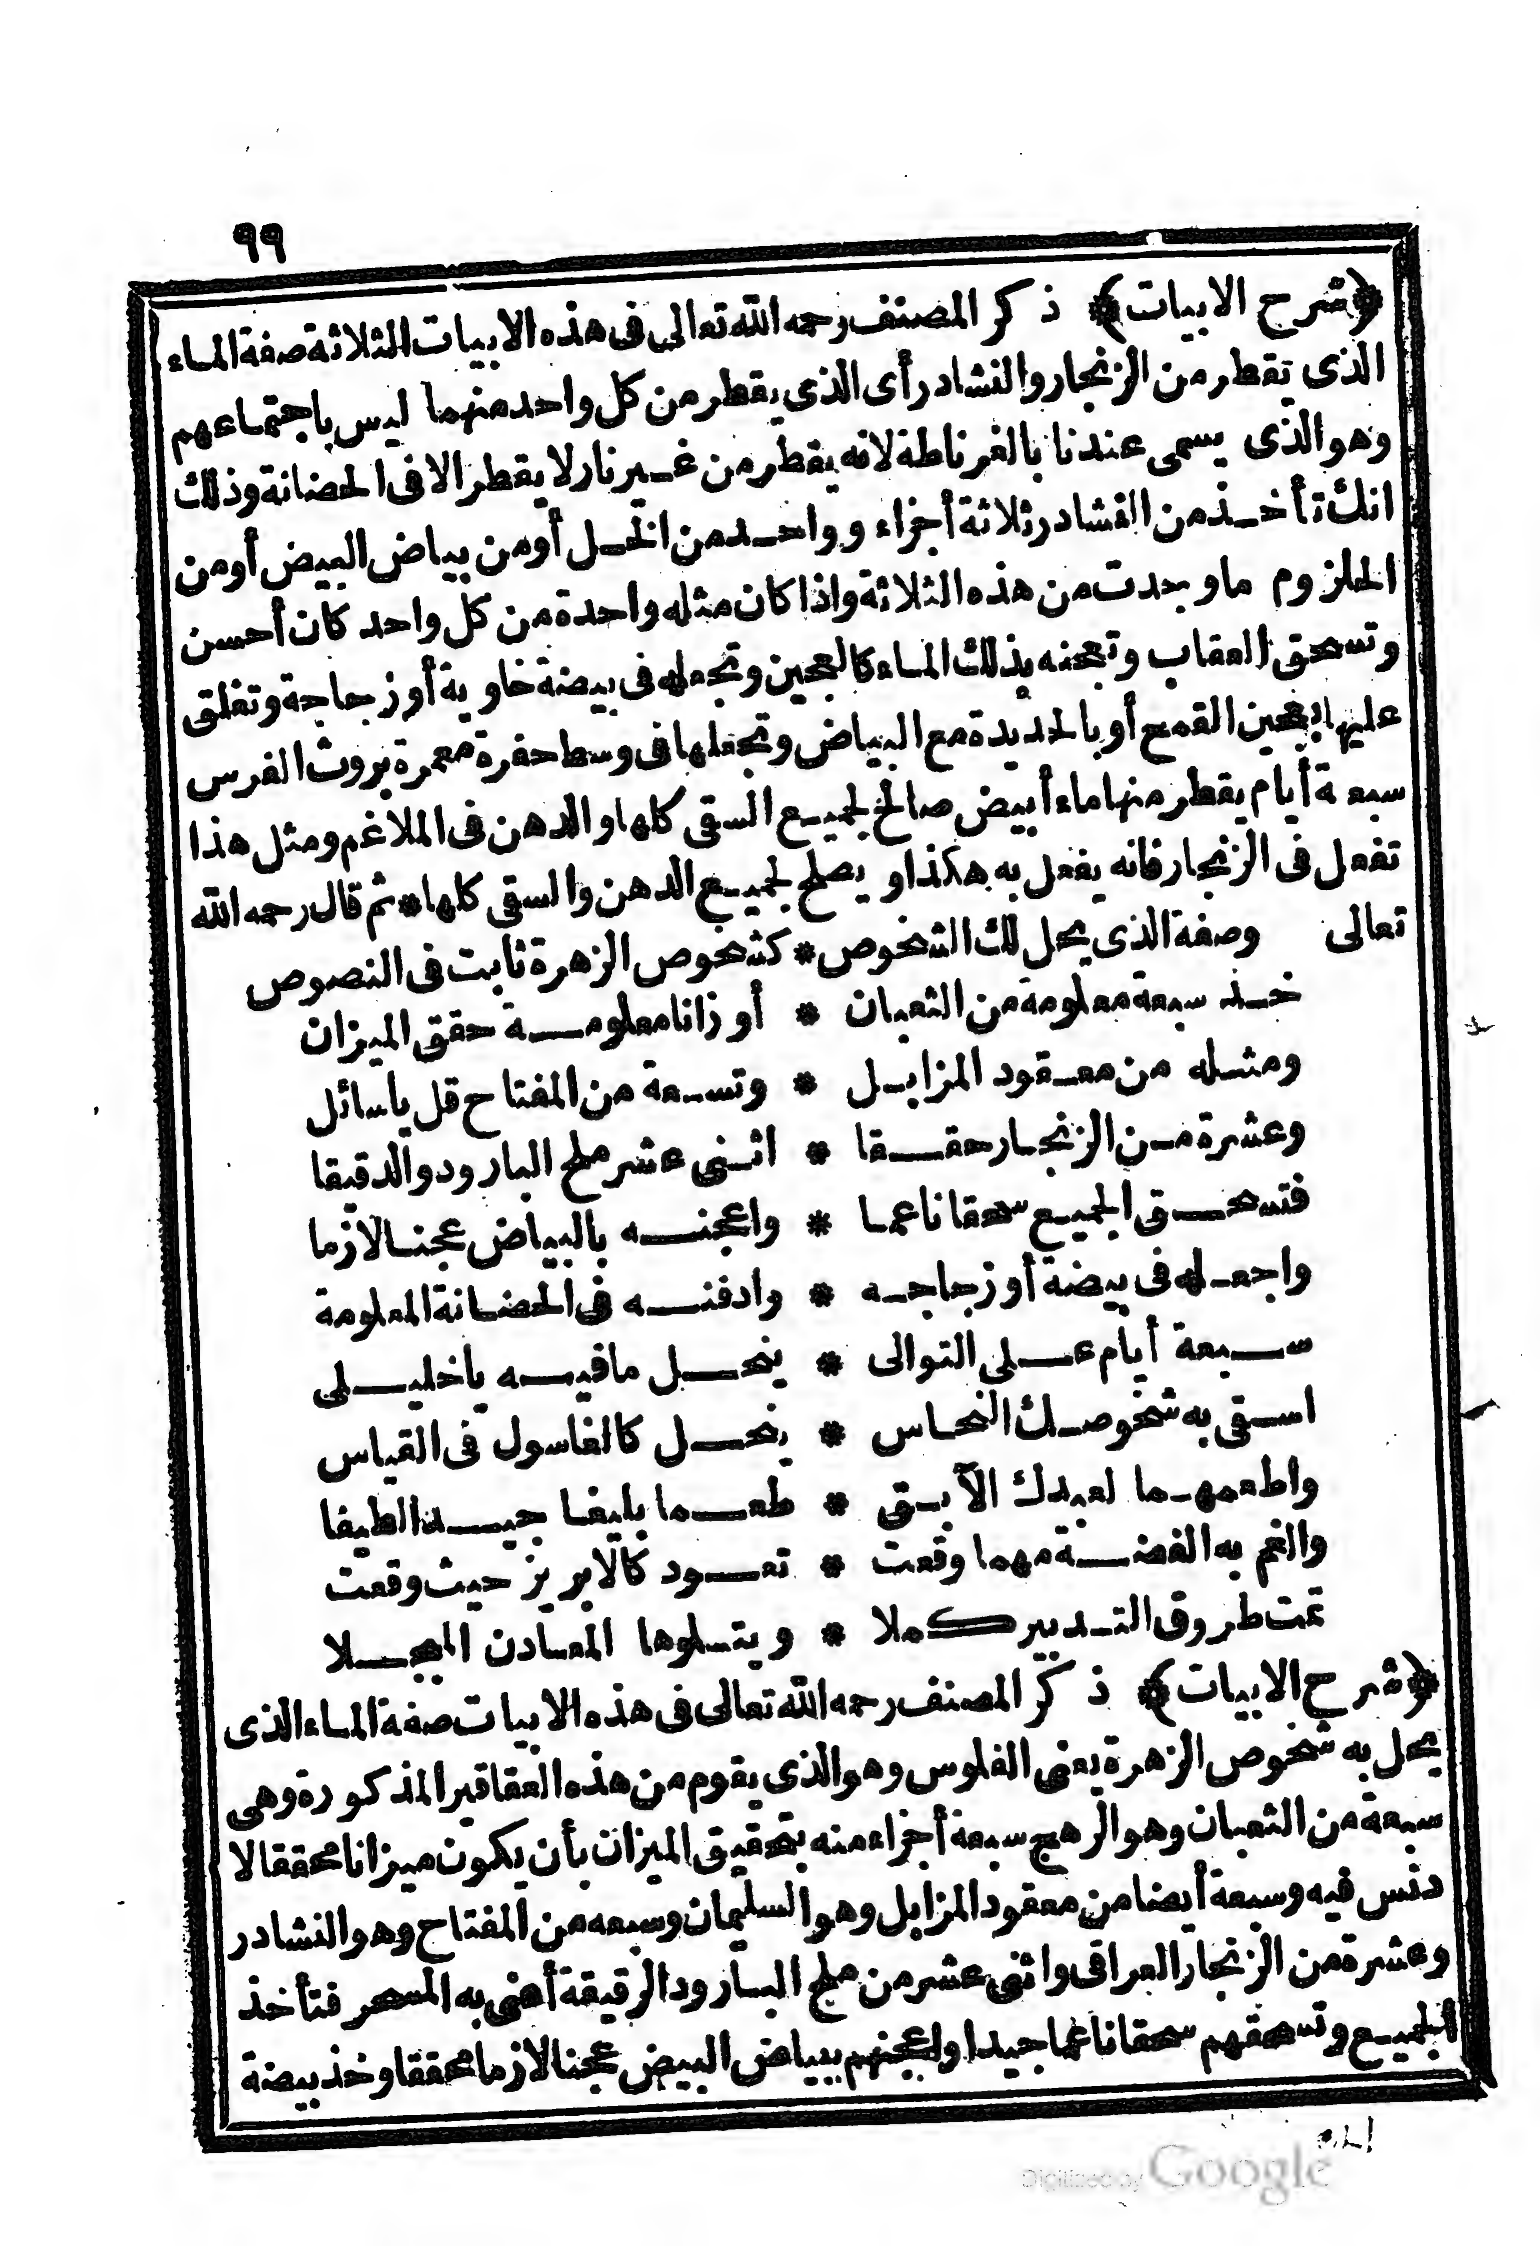 ٩٩
﴿شرح الابيات﴾ ذكر المصنف رحمه الله تعالى فى هذه الابيات الثلاثة صفة الماء
الذى يقطر من الزنجار والنشادر أى الذى يقطر من كل واحد منهما ليس باجتماعهم
وهو الذى يسمى عندنا بالغرناطة لانه يقطر من غير نار لا يقطر الا فى الحضانة وذلك
انك تأخذ من النشادر ثلاثة أجزاء وواحد من الخل أو من بياض البيض أو من
الحلزوم ما وجدت من هذه الثلاثة واذا كان مثله واحدة من كل واحد كان أحسن
وتسحق العقاب وتعجنه بذلك الماء كالعجين وتجعله فى بيضة خاوية أو زجاجة وتغلق
عليها بعجين القمح أو بالحديدة مع البياض وتجعلها فى وسط حفرة معمرة بروث الفرس
سبعة أيام يقطر منها ماء أبيض صالح لجميع السقى كلها والدهن فى الملاغم ومثل هذا
تفعل فى الزنجار فانه يفعل به هكذا ويصلح لجميع الدهن والسقى كلها * ثم قال رحمه الله
تعالى وصفة الذى يحل لك الشخوص * كشخوص الزهرة ثابت فى النصوص
خذ سبعة معلومة من الثعبان * أوزانا معلومة حقق الميزان
ومثله من معقود المزابل * وتسعة من المفتاح قل ياسائل
وعشرة من الزنجار حققا * اثنى عشر ملح البارود والدقيقا
فتسحق الجميع سحقا ناعما * واعجنه بالبياض عجنا لازما
واجعله فى بيضة أو زجاجه * وادفنه فى الحضانة المعلومة
سبعة أيام على التوالى * ينحل ما فيه ياخليلى
اسقى به شخوصك النحاس * ينحل كالغاسول فى القياس
واطعمهما لعبدك الآبق * طعما بليغا جيدا لطيفا
والغم به الفضة مهما وقعت * تعود كالابريز حيث وقعت
تمت طروق التدبير كملا * ويتلوها المعادن
﴿شرح الابيات﴾ ذكر المصنف رحمه الله تعالى فى هذه الابيات صفة الماء الذى
يحل به شخوص الزهرة يعنى الفلوس وهو الذى يقوم من هذه العقاقير المذكورة وهى
سبعة من الثعبان وهو الرهج سبعة أجزاء منه بتحقيق الميزان بأن يكون ميزانا محققا لا
دنس فيه وسبعة أيضا من معقود المزابل وهو السليمان وسبعه من المفتاح وهو النشادر
وعشرة من الزنجار العراقى واثنى عشر من ملح البارود الرقيقة أعنى به المسحر فتأخذ
الجميع وتسحقهم سحقا ناعما جيدا واعجنهم ببياض البيض عجنا لازما محققا وخذ بيضة
Digitized by Google